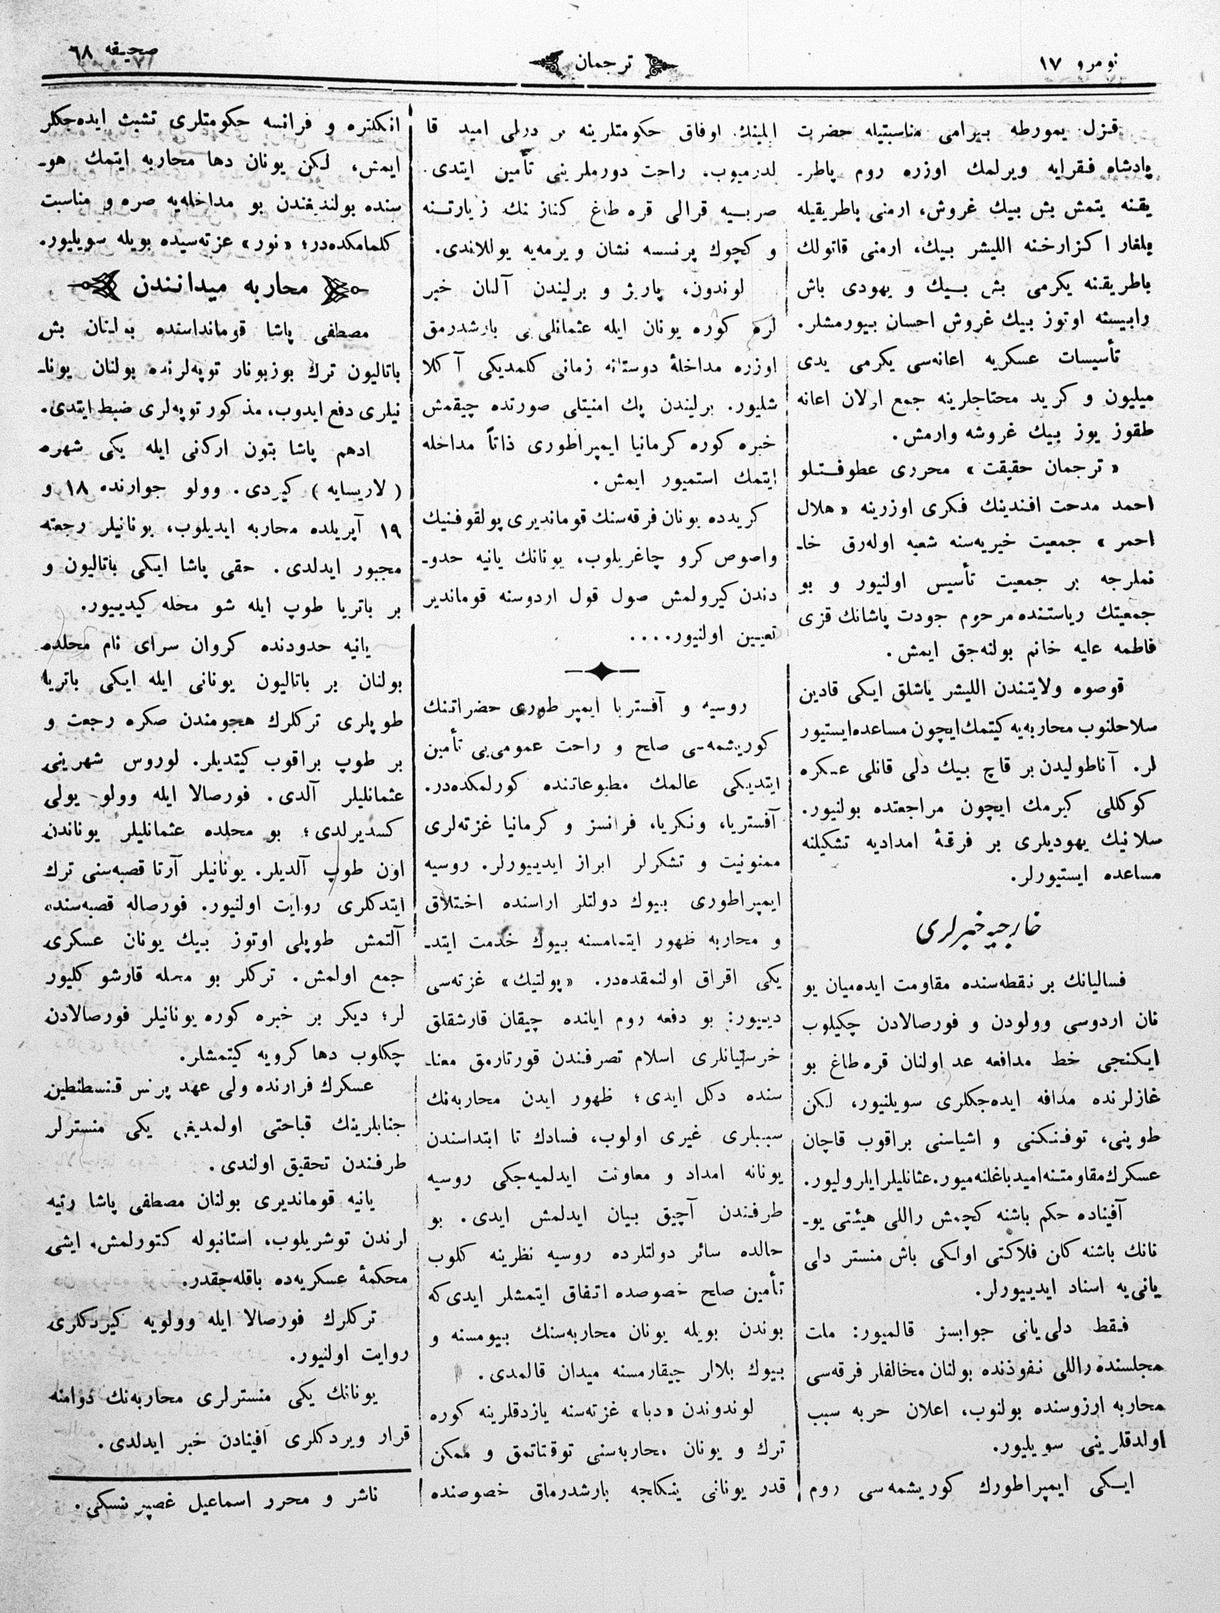 نومرو ١٧
ترجمان
صحيفه ٦٨
قزل يمورطه بيرامی مناسبتيله حضرت
پادشاه فقرايه ويرلمك اوزره روم پاطر۔
يقنه يتمش بش بيك غروش، ارمنی باطريقيله
بلغار اكزارخنه الليشر بيك، ارمنی قاتولك
باطريقنه يكرمی بش بيك و يهودی باش
رابيسنه اوتوز بيك غروش احسان بيورمشلر.
تأسيسات عسكريه اعانه‌سی يكرمی يدی
ميليون و كريد محتاجلرينه جمع اولان اعانه
طقوز يوز بيك غروشه وارمش.
« ترجمان حقيقت » محرری عطوفتلو
احمد مدحت افندينك فكری اوزرينه « هلال
احمر » جمعيت خيريه‌سنه شعبه اوله‌رق خا۔
نملرجه بر جمعيت تأسيس اولنيور و بو
جمعيتك رياستنده مرحوم جودت پاشانك قزی
فاطمه عليه خانم بولنه‌جق ايمش.
قوصوه ولايتندن الليشر ياشلق ايكی قادين
سلاحلنوب محاربه‌يه كيتمك ايچون مساعده ايستيور
لر. آناطوليدن بر قاچ بيك دلی قانلی عسكره
كوكللی كيرمك ايچون مراجعتده بولنيور.
سلانيك يهوديلری بر فرقهٔ امداديه تشكيلنه
مساعده ايستيورلر.
خارجيه خبرلری
فساليانك بر نقطه‌سنده مقاومت ايده‌ميان يو
نان اردوسی وولودن و فورصالادن چكيلوب
ايكنجی خط مدافعه عد اولنان قره طاغ بو
غازلرنده مدافه ايده‌جكلری سويلنيور، لكن
طوپنی، توفنكنی و اشياسنی براقوب قاچان
عسكرك مقاومتنه اميد باغلنه‌ميور. عثانليلر ايلروليور.
آفيناده حكم باشنه كچمش راللی هيئتی يو۔
نانك باشنه كلن فلاكتی اولكی باش منستر دلی
يانی‌يه اسناد ايدييورلر.
فقط دلی‌يانی جوابسز قالميور: ملت
مجلسنده راللی نفوذنده بولنان مخالفلر فرقه‌سی
محاربه ارزوسنده بولنوب، اعلان حربه سبب
اولدقلرينی سويليور.
ايكی ايمپراطورك كوريشمه‌سی روم
ايلينك اوفاق حكومتلرينه بر درلی اميد قا
لدرميوب. راحت دورملرينی تأمين ايتدی.
صربيه قرالی قره طاغ كنازنك زيارتنه
و كچوك پرنسسه نشان ويرمه‌يه يوللاندی.
لوندون، پاريژ و برليندن آلنان خبر
لره كوره يونان ايله عثمانلی‌يی بارشدرمق
اوزره مداخلهٔ دوستانه زمانی كلمديكی آكلا
شليور. برليندن پك امنيتلی صورتده چيقمش
خبره كوره كرمانيا ايمپراطوری ذاتاً مداخله
ايتمك استميور ايمش.
كريدده يونان فرقه‌سنك قومانديری پولقوفنيك
واصوص كرو چاغريلوب، يونانك يانيه حدو۔
دندن كيرولمش صول قول اردوسنه قوماندير
تعيين اولنيور....
روسيه و آفستريا ايمپرطوری حضراتنك
كوريشمه‌سی صلح و راحت عمومی‌يی تأمين
ايتديكی عالمك مطبوعاتنده كورلمكده‌در.
آفستريا، ونكريا، فرانسز و كرمانيا غزته‌لری
ممنونيت و تشكرلر ابراز ايدييورلر. روسيه
ايمپراطوری بيوك دولتلر اراسنده اختلاق
و محاربه ظهور ايتمامسنه بيوك خدمت ايتد۔
يكی اقراق اولنمقده‌در. «پولتيك» غزته‌سی
دييور: بو دفعه روم ايلنده چيقان قارشقلق
خرستيانلری اسلام تصرفندن قورتارمق معنا۔
سنده دكل ايدی؛ ظهور ايدن محاربه‌نك
سببلری غيری اولوب، فسادك تا ابتداسندن
يونانه امداد و معاونت ايدلميه‌جكی روسيه
طرفندن آچيق بيان ايدلمش ايدی. بو
حالده سائر دولتلرده روسيه نظرينه كلوب
تأمين صلح خصوصده اتفاق ايتمشلر ايدی‌كه
بوندن بويله يونان محاربه‌سنك بيومسنه و
بيوك بلالر چيقارمسنه ميدان قالمدی.
لوندوندن «دبا» غزته‌سنه يازدقلرينه كوره
ترك و يونان محاربه‌سنی توقتاتمق و ممكن
قدر يونانی ينكلجه بارشدرماق خصوصنده
انكلتره و فرانسه حكومتلری تشبث ايده‌جكلر
ايمش، لكن يونان دها محاربه ايتمك هو۔
سنده بولنديغندن بو مداخله‌يه صره و مناسبت
كلمامكده‌در؛ «نور» غزته‌سيده بويله سويليور.
محاربه ميدانندن
مصطفی پاشا قومانداسنده بولنان بش
باتاليون ترك بوزبونار توپه‌لرنده بولنان يونا۔
نيلری دفع ايدوب، مذكور توپه‌لری ضبط ايتدی.
ادهم پاشا بتون اركانی ايله يكی شهره
( لاريسايه ) كيردی. وولو جوارنده ١٨ و
١٩ آپريلده محاربه ايديلوب، يونانيلر رجعته
مجبور ايدلدی. حقی پاشا ايكی باتاليون و
بر باتريا طوپ ايله شو محله كيدييور.
يانيه حدودنده كروان سرای نام محلده
بولنان بر باتاليون يونانی ايله ايكی باتريا
طوپلری تركلرك هجومندن صكره رجعت و
بر طوپ براقوب كيتديلر. لوروس شهرينی
عثمانليلر آلدی. فورصالا ايله وولو يولی
كسديرلدی؛ بو محلده عثمانليلر يوناندن
اون طوپ آلديلر. يونانيلر آرتا قصبه‌سنی ترك
ايتدكلری روايت اولنيور. فورصاله قصبه‌سنده
آلتمش طوپلی اوتوز بيك يونان عسكری
جمع اولمش. تركلر بو محله قارشو كليور
لر؛ ديكر بر خبره كوره يونانيلر فورصالادن
چكلوب دها كرويه كيتمشلر.
عسكرك فرارنده ولی عهد پرنس قنسطنطين
جنابلرينك قباحتی اولمديغی يكی منسترلر
طرفندن تحقيق اولندی.
يانيه قومانديری بولنان مصطفی پاشا رتبه
لرندن توشريلوب، استانبوله كتورلمش. ايشی
محكمهٔ عسكريه‌ده باقله‌جقدر.
تركلرك فورصالا ايله وولويه كيردكلری
روايت اولنيور.
يونانك يكی منسترلری محاربه‌نك دوامنه
قرار ويردكلری آفينادن خبر ايدلدی.
ناشر و محرر اسماعيل غصپرنسكی.